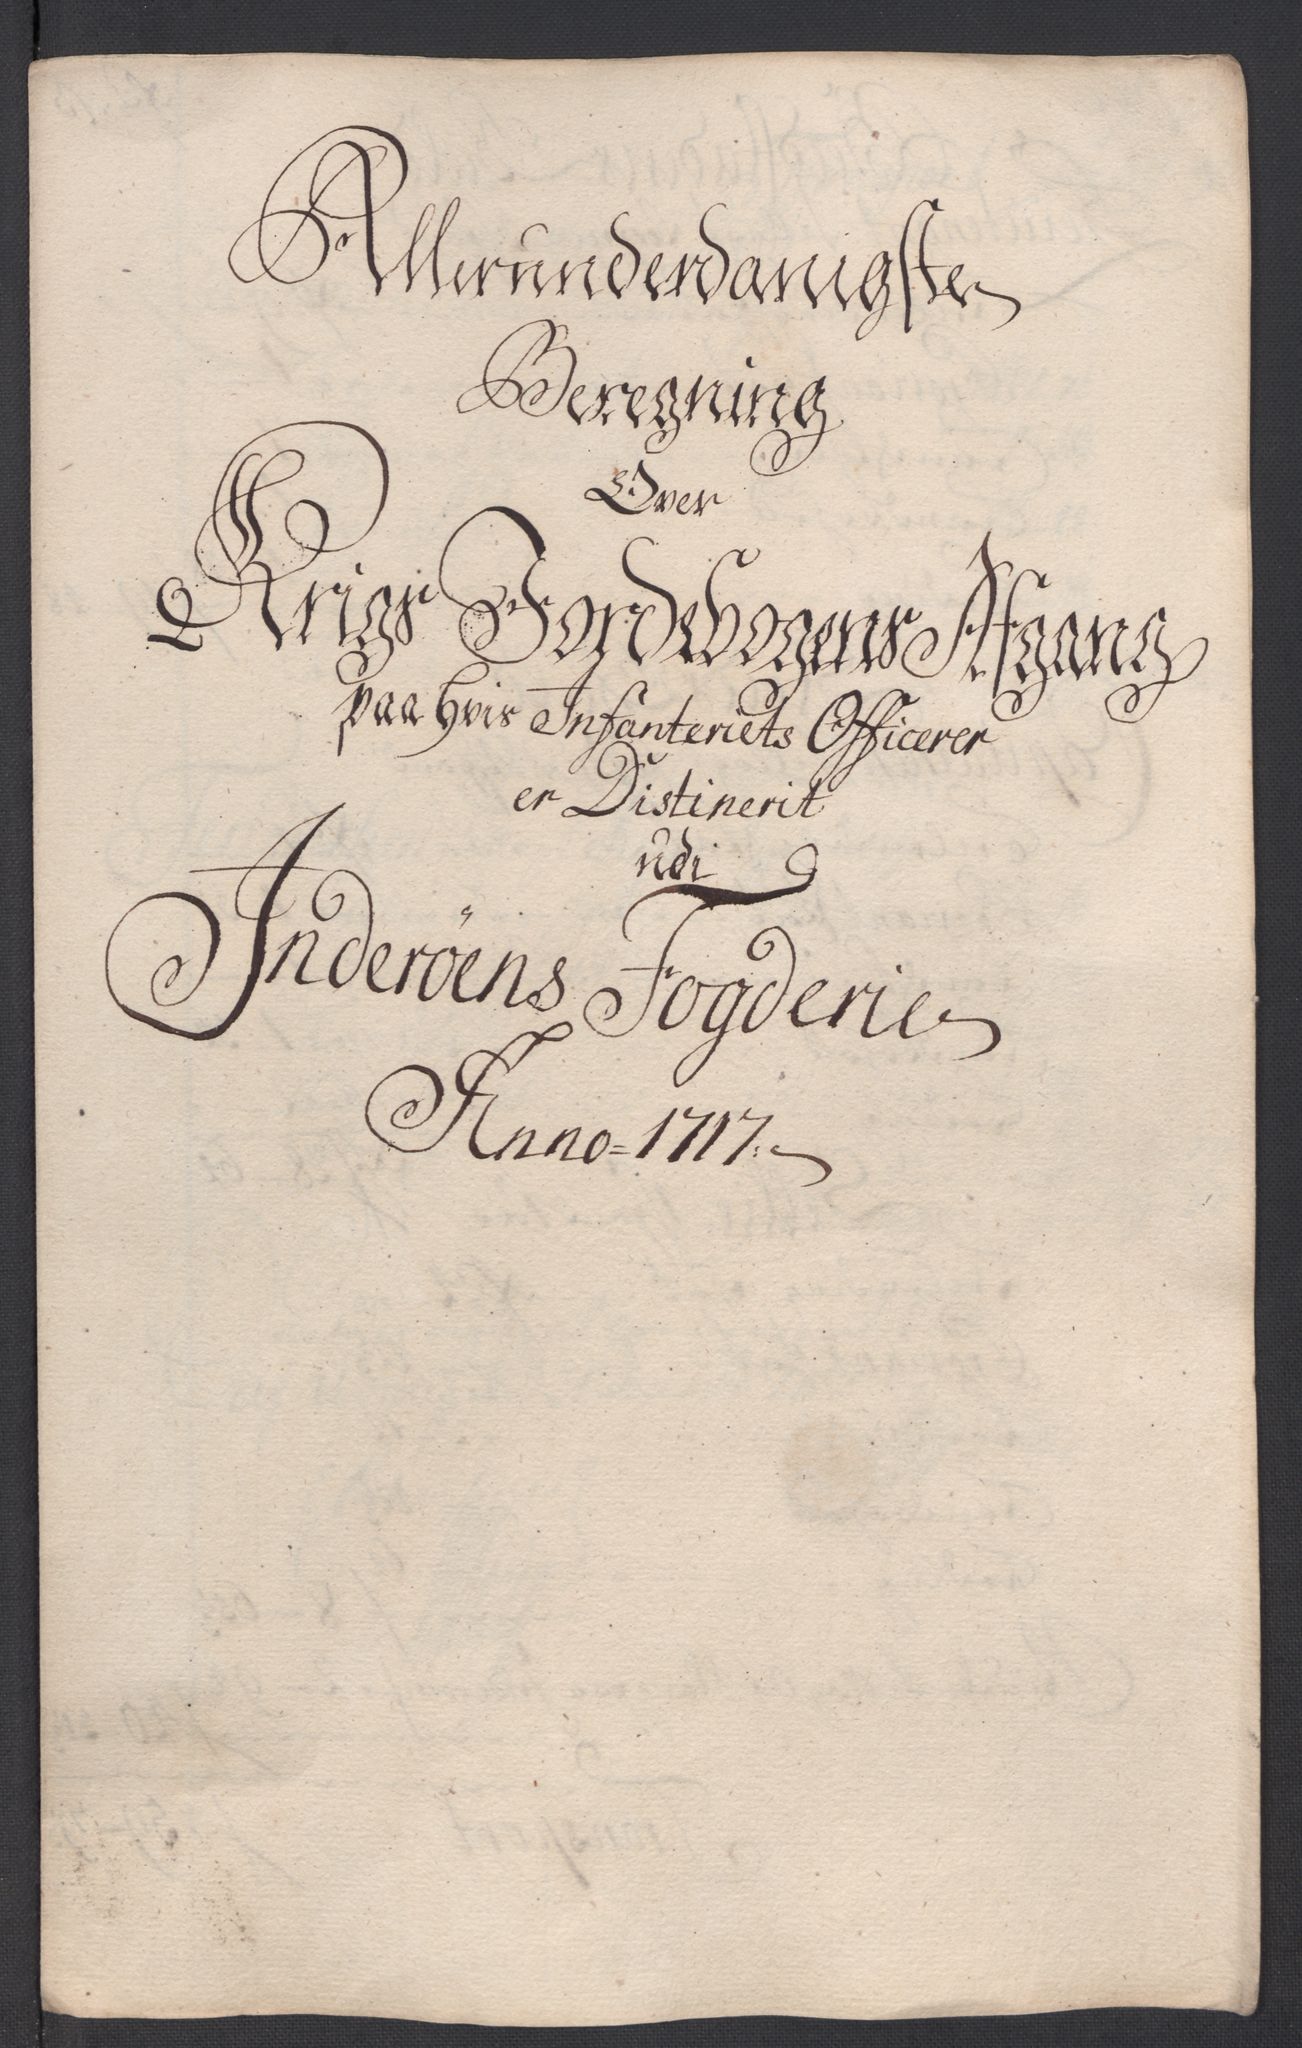 Allerunderdanigste
Beregning
Over
Krigs Jordebogens Afgang
paa hvis Infanteriets Officerer
er Distinerit
udi
Inderöens Fogderie
Anno=1717.
Transport